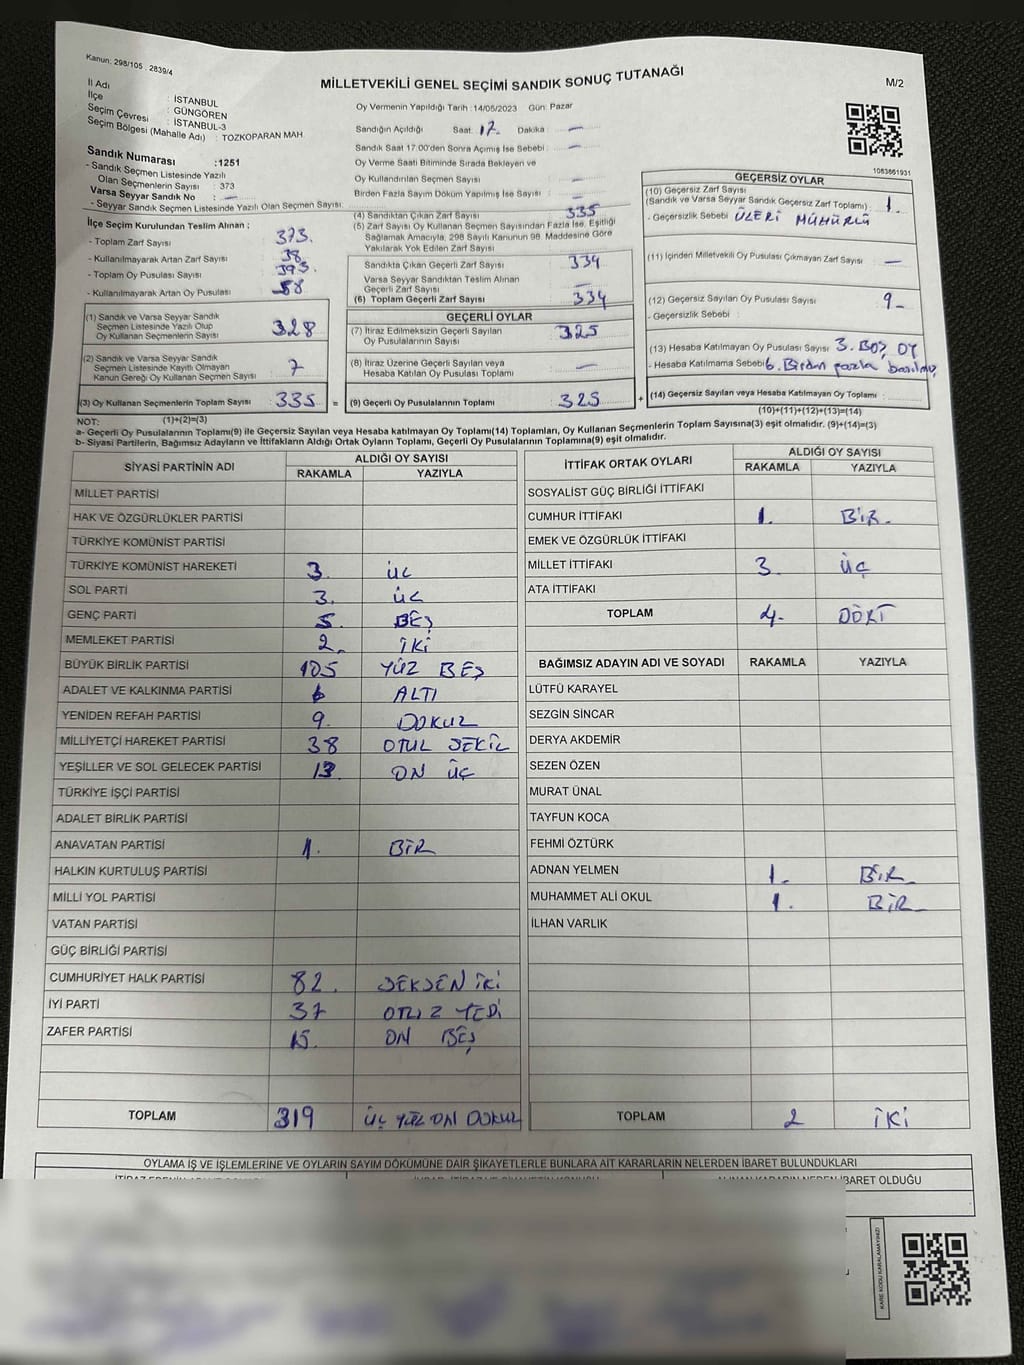 Kanun: 298/105 . 2839/4
MİLLETVEKİLİ GENEL SEÇİMİ SANDIK SONUÇ TUTANAĞI
M/2
İl Adı : İSTANBUL
İlçe : GÜNGÖREN
Seçim Çevresi : İSTANBUL-3
Seçim Bölgesi (Mahalle Adı) : TOZKOPARAN MAH.
Oy Vermenin Yapıldığı Tarih : 14/05/2023 Gün: Pazar
Sandığın Açıldığı Saat: 17. Dakika : —
Sandık Saat 17:00'den Sonra Açımış İse Sebebi : —
Oy Verme Saati Bitiminde Sırada Bekleyen ve
Oy Kullandırılan Seçmen Sayısı : —
Birden Fazla Sayım Döküm Yapılmış İse Sayısı : —
Sandık Numarası :1251
- Sandık Seçmen Listesinde Yazılı
Olan Seçmenlerin Sayısı : 373
Varsa Seyyar Sandık No : —
- Seyyar Sandık Seçmen Listesinde Yazılı Olan Seçmen Sayısı:
İlçe Seçim Kurulundan Teslim Alınan ;
- Toplam Zarf Sayısı : 373.
- Kullanılmayarak Artan Zarf Sayısı : 38.
- Toplam Oy Pusulası Sayısı : 393.
- Kullanılmayarak Artan Oy Pusulası : 58
(1) Sandık ve Varsa Seyyar Sandık
Seçmen Listesinde Yazılı Olup
Oy Kullanan Seçmenlerin Sayısı : 328
(2) Sandık ve Varsa Seyyar Sandık
Seçmen Listesinde Kayıtlı Olmayan
Kanun Gereği Oy Kullanan Seçmen Sayısı : 7
(3) Oy Kullanan Seçmenlerin Toplam Sayısı : 335 =
(1)+(2)=(3)
(4) Sandıktan Çıkan Zarf Sayısı : 335
(5) Zarf Sayısı Oy Kullanan Seçmen Sayısından Fazla İse, Eşitliği
Sağlamak Amacıyla, 298 Sayılı Kanunun 98. Maddesine Göre
Yakılarak Yok Edilen Zarf Sayısı
Sandıkta Çıkan Geçerli Zarf Sayısı : 334
Varsa Seyyar Sandıktan Teslim Alınan
Geçerli Zarf Sayısı : —
(6) Toplam Geçerli Zarf Sayısı : 334
GEÇERLİ OYLAR
(7) İtiraz Edilmeksizin Geçerli Sayılan
Oy Pusulasının Sayısı : 325
(8) İtiraz Üzerine Geçerli Sayılan veya
Hesaba Katılan Oy Pusulası Toplamı : —
(9) Geçerli Oy Pusulalarının Toplamı : 325 +
1083661931
GEÇERSİZ OYLAR
(10) Geçersiz Zarf Sayısı
(Sandık ve Varsa Seyyar Sandık Geçersiz Zarf Toplamı) : 1.
- Geçersizlik Sebebi : ÜZERİ MÜHÜRLÜ
(11) İçinden Milletvekili Oy Pusulası Çıkmayan Zarf Sayısı : —
(12) Geçersiz Sayılan Oy Pusulası Sayısı : 9-
- Geçersizlik Sebebi :
(13) Hesaba Katılmayan Oy Pusulası Sayısı : 3. BOŞ OY
- Hesaba Katılmama Sebebi : 6. Birden fazla basılmış
(14) Geçersiz Sayılan veya Hesaba Katılmayan Oy Toplamı :
(10)+(11)+(12)+(13)=(14)
NOT:
a- Geçerli Oy Pusulalarının Toplamı(9) ile Geçersiz Sayılan veya Hesaba katılmayan Oy Toplamı(14) Toplamları, Oy Kullanan Seçmenlerin Toplam Sayısına(3) eşit olmalıdır. (9)+(14)=(3)
b- Siyasi Partilerin, Bağımsız Adayların ve İttifakların Aldığı Ortak Oyların Toplamı, Geçerli Oy Pusulalarının Toplamına(9) eşit olmalıdır.
SİYASİ PARTİNİN ADI ALDIĞI OY SAYISI
RAKAMLA YAZIYLA
MİLLET PARTİSİ
HAK VE ÖZGÜRLÜKLER PARTİSİ
TÜRKİYE KOMÜNİST PARTİSİ
TÜRKİYE KOMÜNİST HAREKETİ 3. ÜÇ
SOL PARTİ 3. ÜÇ
GENÇ PARTİ 5. BEŞ
MEMLEKET PARTİSİ 2. İKİ
BÜYÜK BİRLİK PARTİSİ 105 YÜZ BEŞ
ADALET VE KALKINMA PARTİSİ 6 ALTI
YENİDEN REFAH PARTİSİ 9. DOKUZ
MİLLİYETÇİ HAREKET PARTİSİ 38 OTUZ SEKİZ
YEŞİLLER VE SOL GELECEK PARTİSİ 13. ON ÜÇ
TÜRKİYE İŞÇİ PARTİSİ
ADALET BİRLİK PARTİSİ
ANAVATAN PARTİSİ 1. BİR
HALKIN KURTULUŞ PARTİSİ
MİLLİ YOL PARTİSİ
VATAN PARTİSİ
GÜÇ BİRLİĞİ PARTİSİ
CUMHURİYET HALK PARTİSİ 82. SEKSEN İKİ
İYİ PARTİ 37 OTUZ YEDİ
ZAFER PARTİSİ 15. ON BEŞ
TOPLAM 319 ÜÇ YÜZ ON DOKUZ
İTTİFAK ORTAK OYLARI ALDIĞI OY SAYISI
RAKAMLA YAZIYLA
SOSYALİST GÜÇ BİRLİĞİ İTTİFAKI
CUMHUR İTTİFAKI 1. BİR.
EMEK VE ÖZGÜRLÜK İTTİFAKI
MİLLET İTTİFAKI 3. ÜÇ
ATA İTTİFAKI
TOPLAM 4. DÖRT
BAĞIMSIZ ADAYIN ADI VE SOYADI RAKAMLA YAZIYLA
LÜTFÜ KARAYEL
SEZGİN SİNCAR
DERYA AKDEMİR
SEZEN ÖZEN
MURAT ÜNAL
TAYFUN KOCA
FEHMİ ÖZTÜRK
ADNAN YELMEN 1. BİR
MUHAMMET ALİ OKUL 1. BİR
İLHAN VARLIK
TOPLAM 2 İKİ
OYLAMA İŞ VE İŞLEMLERİNE VE OYLARIN SAYIM DÖKÜMÜNE DAİR ŞİKAYETLERLE BUNLARA AİT KARARLARIN NELERDEN İBARET BULUNDUKLARI
ALINAN KARARIN NEDEN İBARET OLDUĞU
KARE KODU KARALAMAYINIZ!